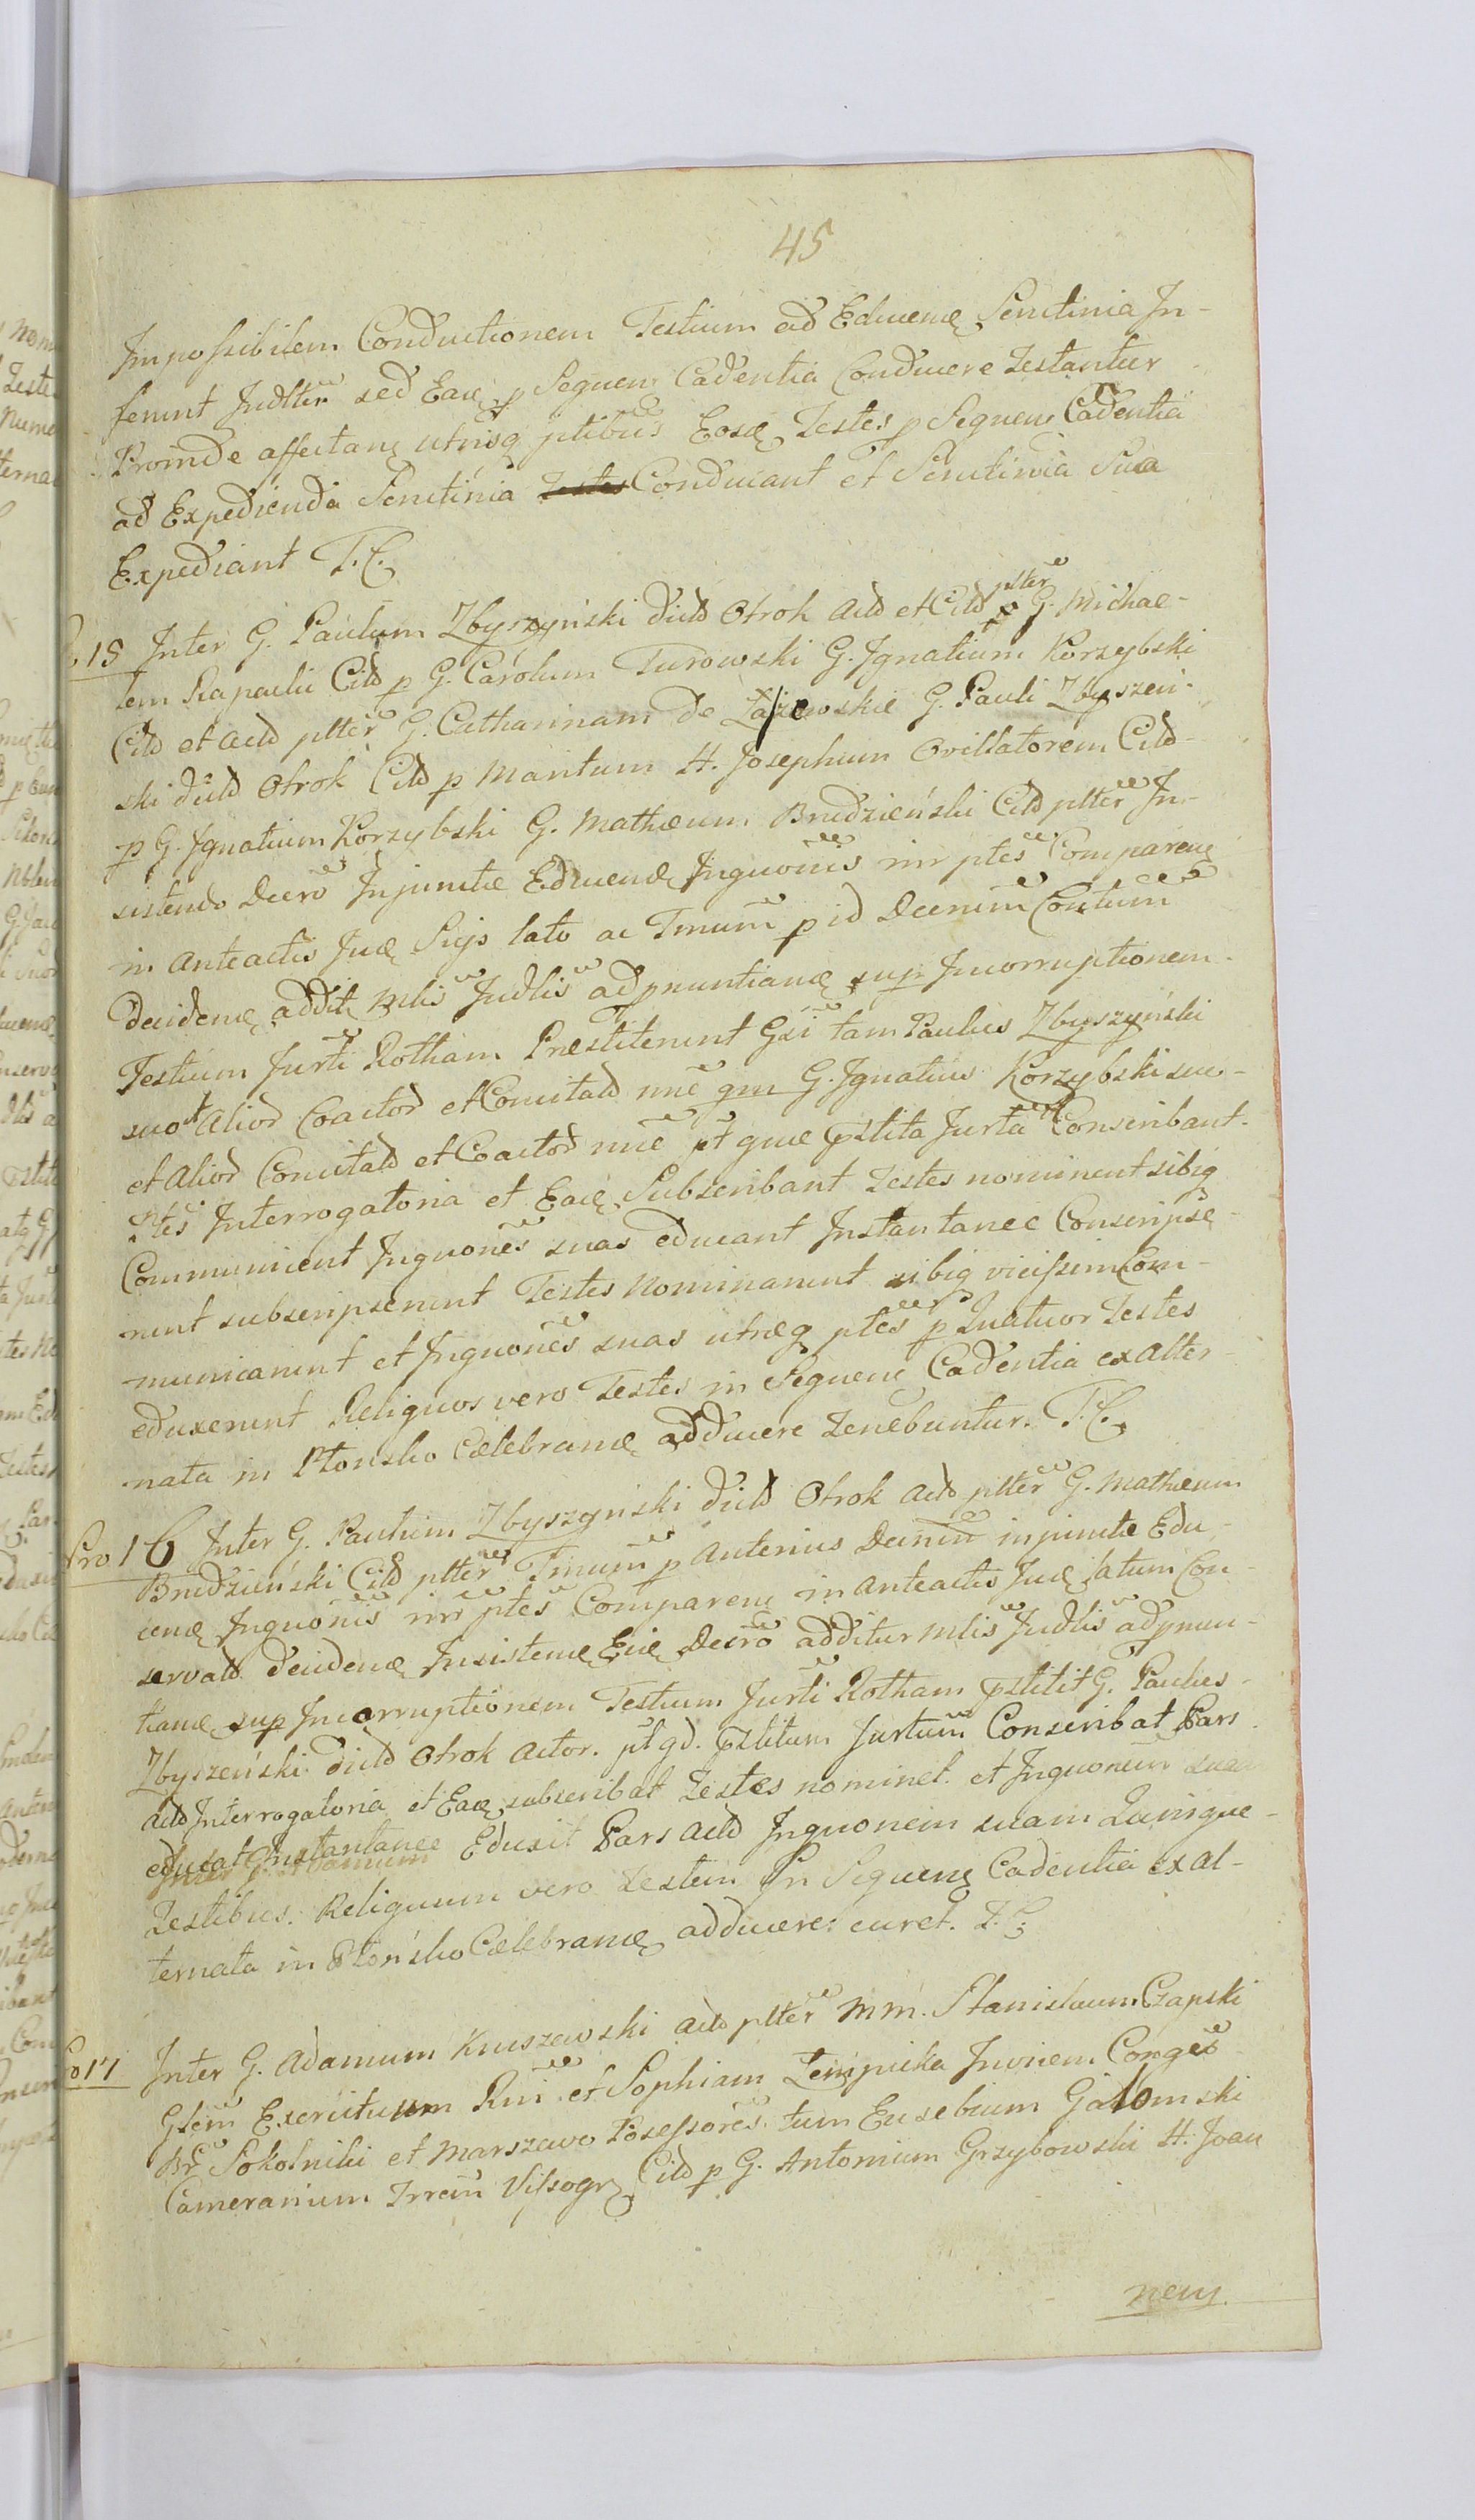 45
Impossibilem Conductionem Testium ad Educenę Scrutinia In-
ferunt Judtter sed Eaeę p Sequen Cadentia Conducere Testantur
Proinde affectanę utrisq ptibus Eosdę Testes p Sequen Cadentia
ad Expedienda Scrutinia Testes Conducant et Scrutinia Sua
Expediant T. C.
15 Inter G. Paulum Zbyszyński dictd Otrok Actd et Citd ptter p G. Michae-
lem Rapacki Citd p G. Carolum Turowski G. Ignatium Korzybski
Citd et Actd ptter G. Catharinam de Zajewskie G. Pauli Zbyszeń-
ski dictd Otrok Citd p Maritum H. Josephum Ovillatorem Citd
p G. Ignatium Korzybski G. Mathæum Brudzieński Citd ptter In-
sistendo Decro Injunctæ Educenæ Inquonis nrr ptes Comparenę
in anteactis Jucę Sijs lato ac Tmum p id Decrum Contum
decidenę addit Mlis Judlis adpnuntianę sup Incorruptionem
Testium Jurti Rotham Præstiterunt Gsi tam Paulus Zbyszyński
suo et Aliord Coactord et Concitatd nne qm G. Ignatius Korzybski suo
et Aliord Concitatd et Coactord nne pt quæ pstita Jurta Conscribant
Ptes Interrogatoria et Eaeę Subscribant Testes nominent sibiq
Communicent Inquones suas educant Instantanee Conscripsę-
runt subscripserunt Testes Nominarunt sibiq vicissim Com-
municarunt et Inquones suas utræq ptes p Quatuor Testes
eduxerunt Reliquos vero Testes in Sequenę Cadentia ex Alter-
nata in Płonsko Celebranę adducere Tenebuntur. T. C.
Pro 16 Inter G. Paulum Zbyszynski dictd Otrok Actd ptter G. Mathæum
Brudzieński Citd ptter Tmum p Anterius Decrum injunctæ Edu-
cenę Inquonis nrr ptes Comparenę in Anteactis Jucę latum Con-
servatd decidenę Insistenę Eię Decro additur Mlis Judlis adpnun-
tianę sup Incorruptionem Testium Jurti Rotham pstitit G. Paulus
Zbyszeński dictd Otrok Actor. pt qd. pstitum Jurtum Conscribat Pars
Actd Interrogatoria et Eaeę subscribat Testes nominet. et Inquonem suam
educat Instantanee Eduxit Pars Actd Inquonem suam Quinque
Testibus. Reliquum vero Testem In Sequenę Cadentia ex al-
ternata in Płońsko Celebranę adducere curet. T. C.
017 Inter G. Adamum Kruszewski Actd ptter M m. Stanislaum Czapski
Glem Exercituum Rni et Sophiam Zempicka Invicem Conges
Br Sokolniki et Marszewo Possessores tum Eusebium Gałomski
Camerarium Trrem Vissogrę Citd p G. Antonium Grzybowski H. Joan
nem